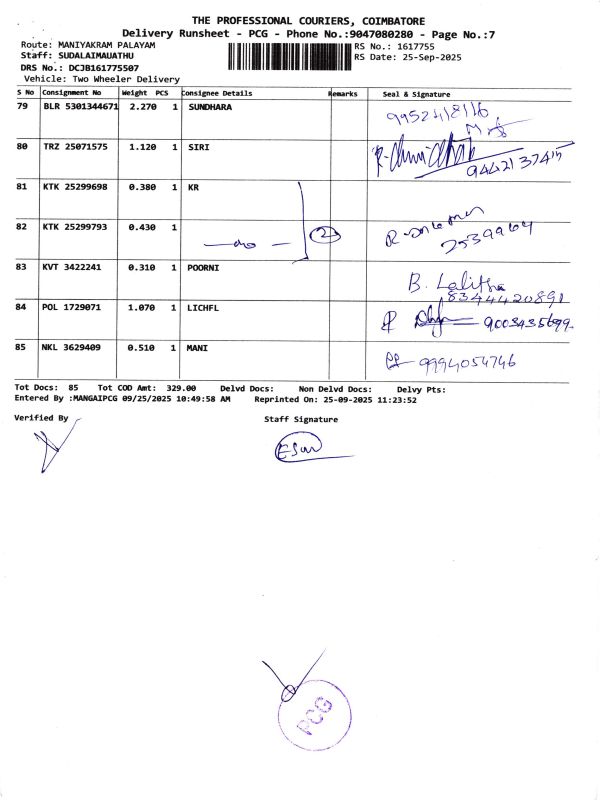 THE PROFESSIONAL COURIERS, COIMBATORE
Delivery Runsheet - PCG - Phone No.:9047080280 - Page No.:7
Route: MANIYAKRAM PALAYAM RS No.: 1617755
Staff: SUDALAIMAUATHU RS Date: 25-Sep-2025
DRS No.: DCJB161775507
Vehicle: Two Wheeler Delivery
S No Consignment No Weight PCS Consignee Details Remarks Seal & Signature
79 BLR 5301344671 2.270 1 SUNDHARA 9952418116
80 TRZ 25071575 1.120 1 SIRI 9442137415
81 KTK 25299698 0.380 1 KR
82 KTK 25299793 0.430 1 —do— 2
83 KVT 3422241 0.310 1 POORNI B. Lalitha
8344420891
84 POL 1729071 1.070 1 LICHFL 9003435699
85 NKL 3629409 0.510 1 MANI 9994054746
Tot Docs: 85 Tot COD Amt: 329.00 Delvd Docs: Non Delvd Docs: Delvy Pts:
Entered By :MANGAIPCG 09/25/2025 10:49:58 AM Reprinted On: 25-09-2025 11:23:52
Verified By Staff Signature
PCG